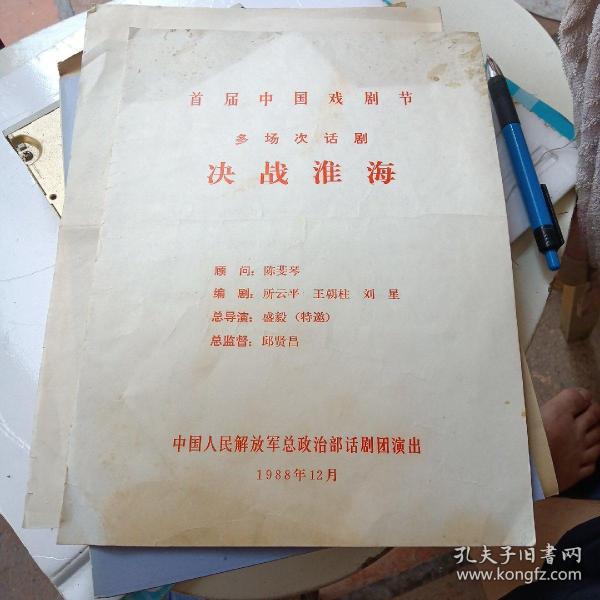 首届中国戏剧节
多场次话剧
决战淮海
顾 问：陈斐琴
编 剧：所云平 王朝柱 刘 星
总导演：盛毅（特邀）
总监督：邱贤昌
中国人民解放军总政治部话剧团演出
1988年12月
孔夫子旧书网
www.kongfz.com